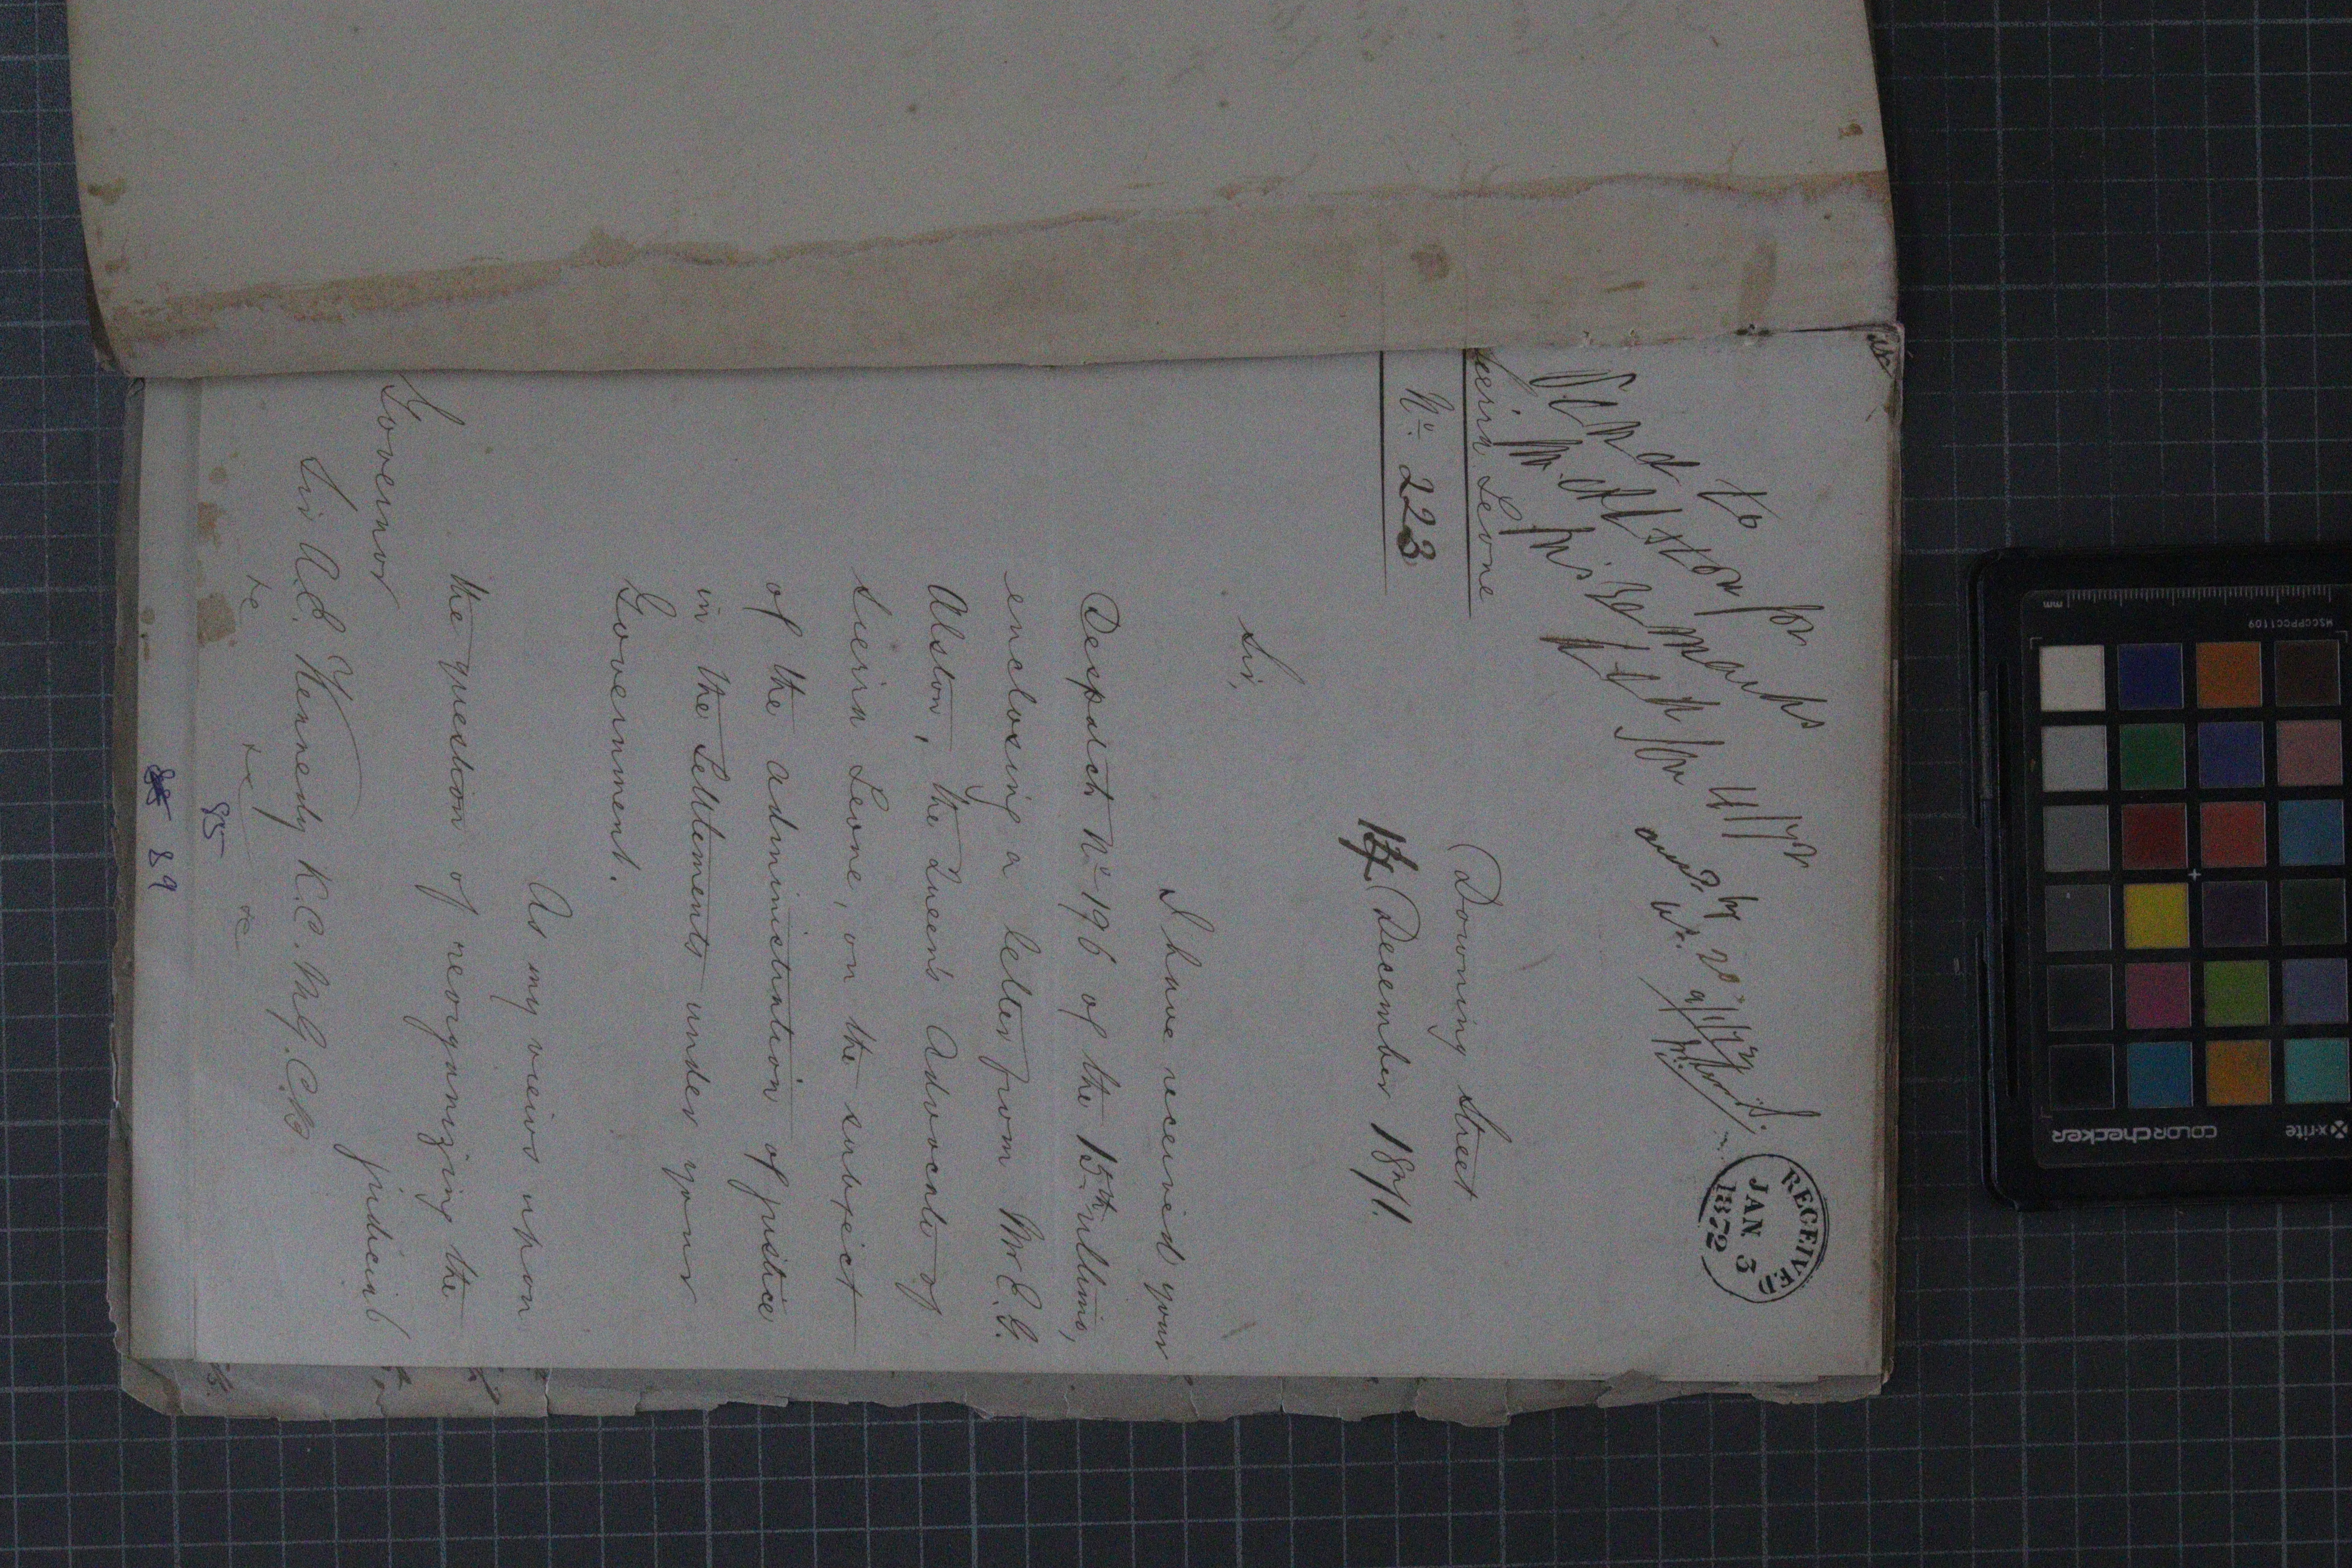 Send
to
Mr Alston for
his remarks
RECEIVED
JAN 3
1872
Sierra Leone
No. 223
Downing Street
14 December 1871.
Sir,
I have received your
Despatch No. 196 of the 15th ultimo,
enclosing a letter from Mr E. G.
Alston, the Queen's Advocate of
Sierra Leone, on the subject
of the administration of justice
in the Settlements under your
Government.
As my views upon
the question of reorganizing the
judicial
Governor
Sir A. E. Kennedy K.C.M.G. C.B
&c &c &c
85
89
x-rite
colorchecker
MSCCPPCC1109
mm